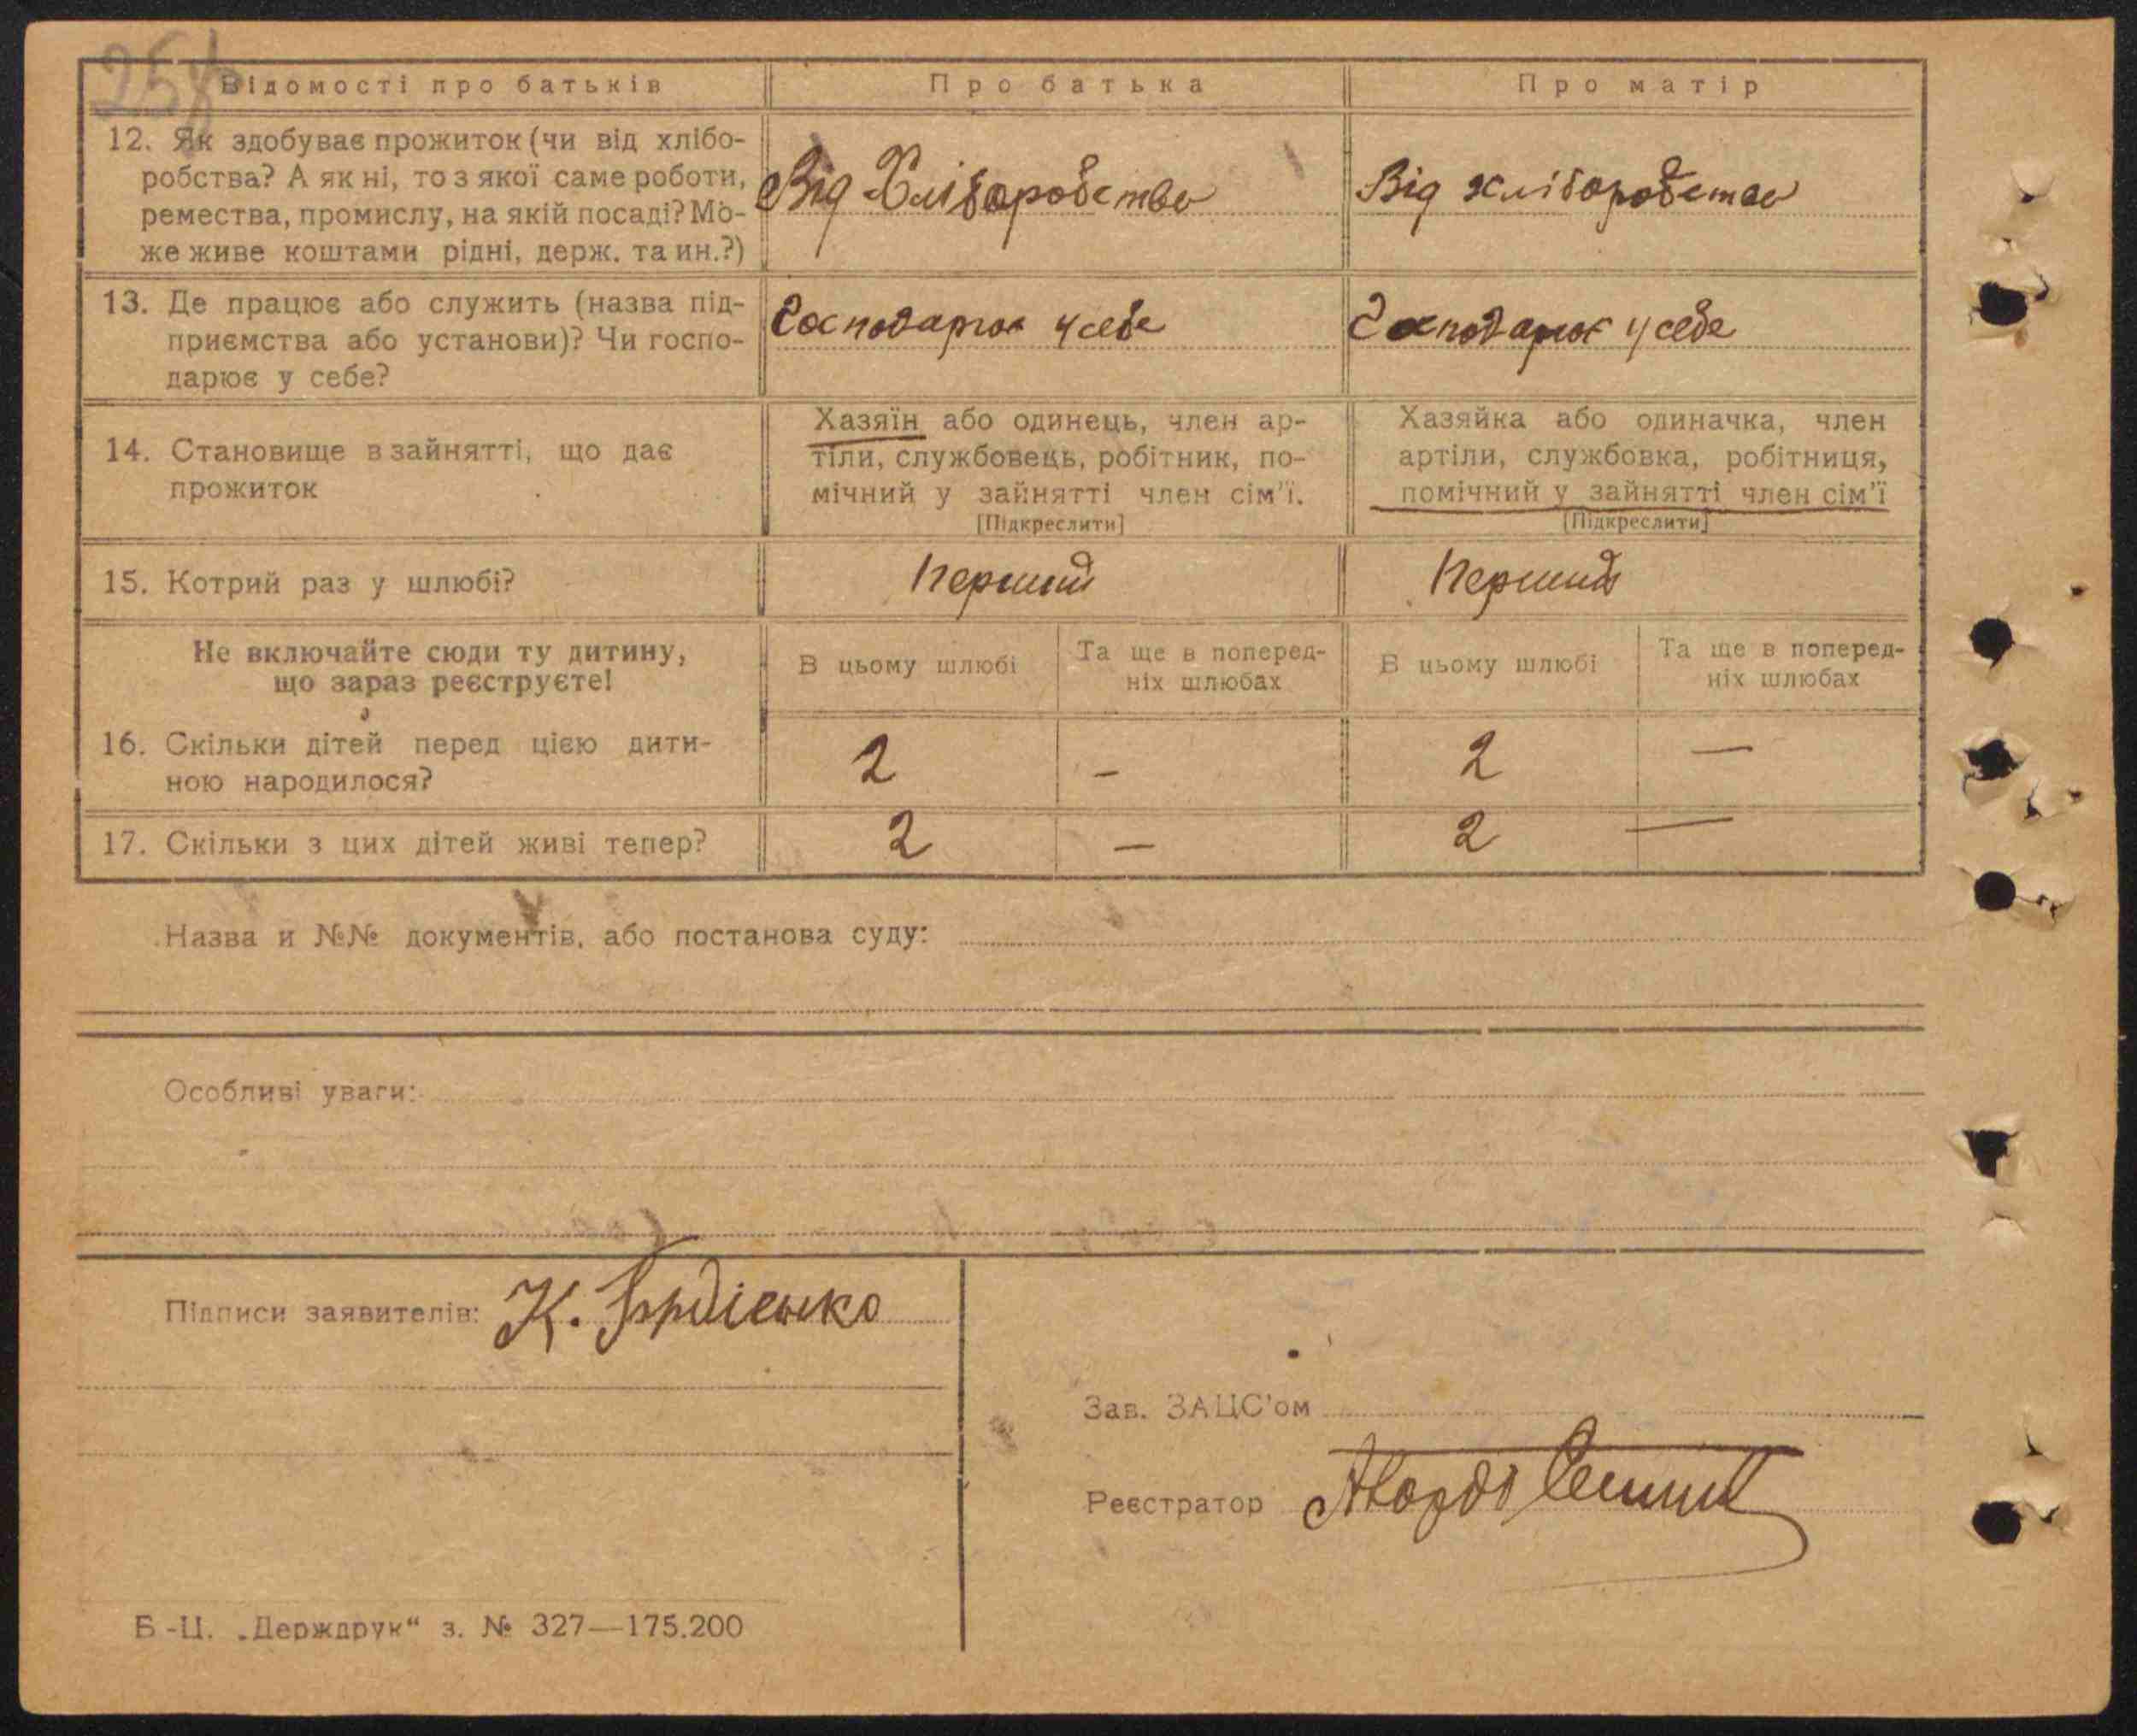 Відомості про батьків
Про батька
Про матір
12. Як здобуває прожиток (чи від хлібо-
робства? А як ні, то з якої саме роботи,
ремества, промислу, на якій посаді? Мо-
же живе коштами рідні, держ. та ин.?)
Від Хліборобства
Від хліборобства
13. Де працює або служить (назва під-
приємства або установи)? Чи госпо-
дарює у себе?
Господарює у себе
Господарює у себе
14. Становище в зайнятті, що дає
прожиток
Хазяїн або одинець, член ар-
тіли, службовець, робітник, по-
мічний у зайнятті член сім'ї.
[Підкреслити]
Хазяйка або одиначка, член
артіли, службовка, робітниця,
помічний у зайнятті член сім'ї
[Підкреслити]
15. Котрий раз у шлюбі?
Перший
Перший
Не включайте сюди ту дитину,
що зараз реєструєте!
В цьому шлюбі
Та ще в поперед-
ніх шлюбах
В цьому шлюбі
Та ще в поперед-
ніх шлюбах
16. Скільки дітей перед цією дити-
ною народилося?
2
–
2
—
17. Скільки з цих дітей живі тепер?
2
—
2
—
Назва и №№ документів, або постанова суду:
Особливі уваги:
Підписи заявителів: К. Гордієнко
Зав. ЗАЦС'ом
Реєстратор
Б-Ц. „Держдрук“ з. № 327—175.200